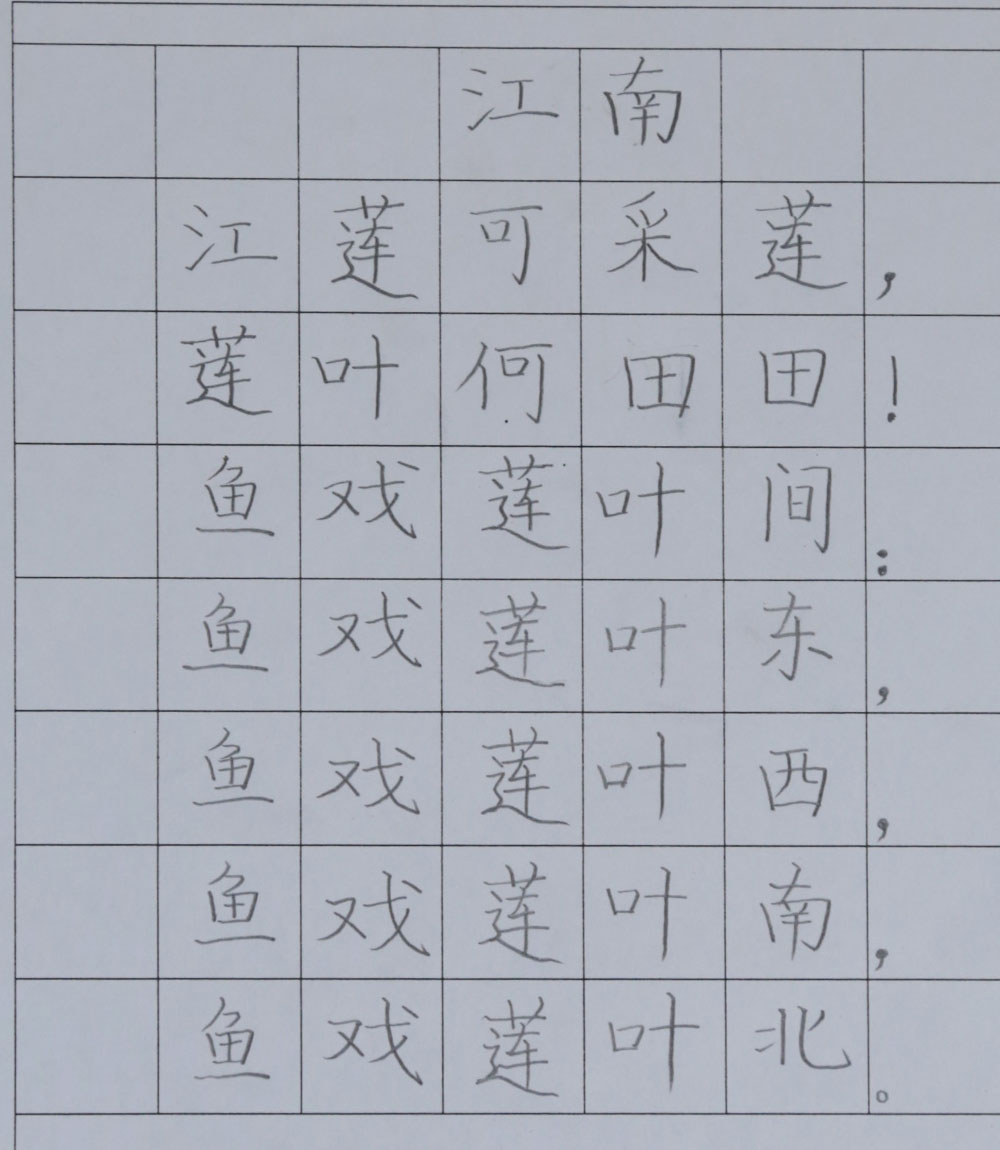 江南
江莲可采莲，
莲叶何田田！
鱼戏莲叶间：
鱼戏莲叶东，
鱼戏莲叶西，
鱼戏莲叶南，
鱼戏莲叶北。